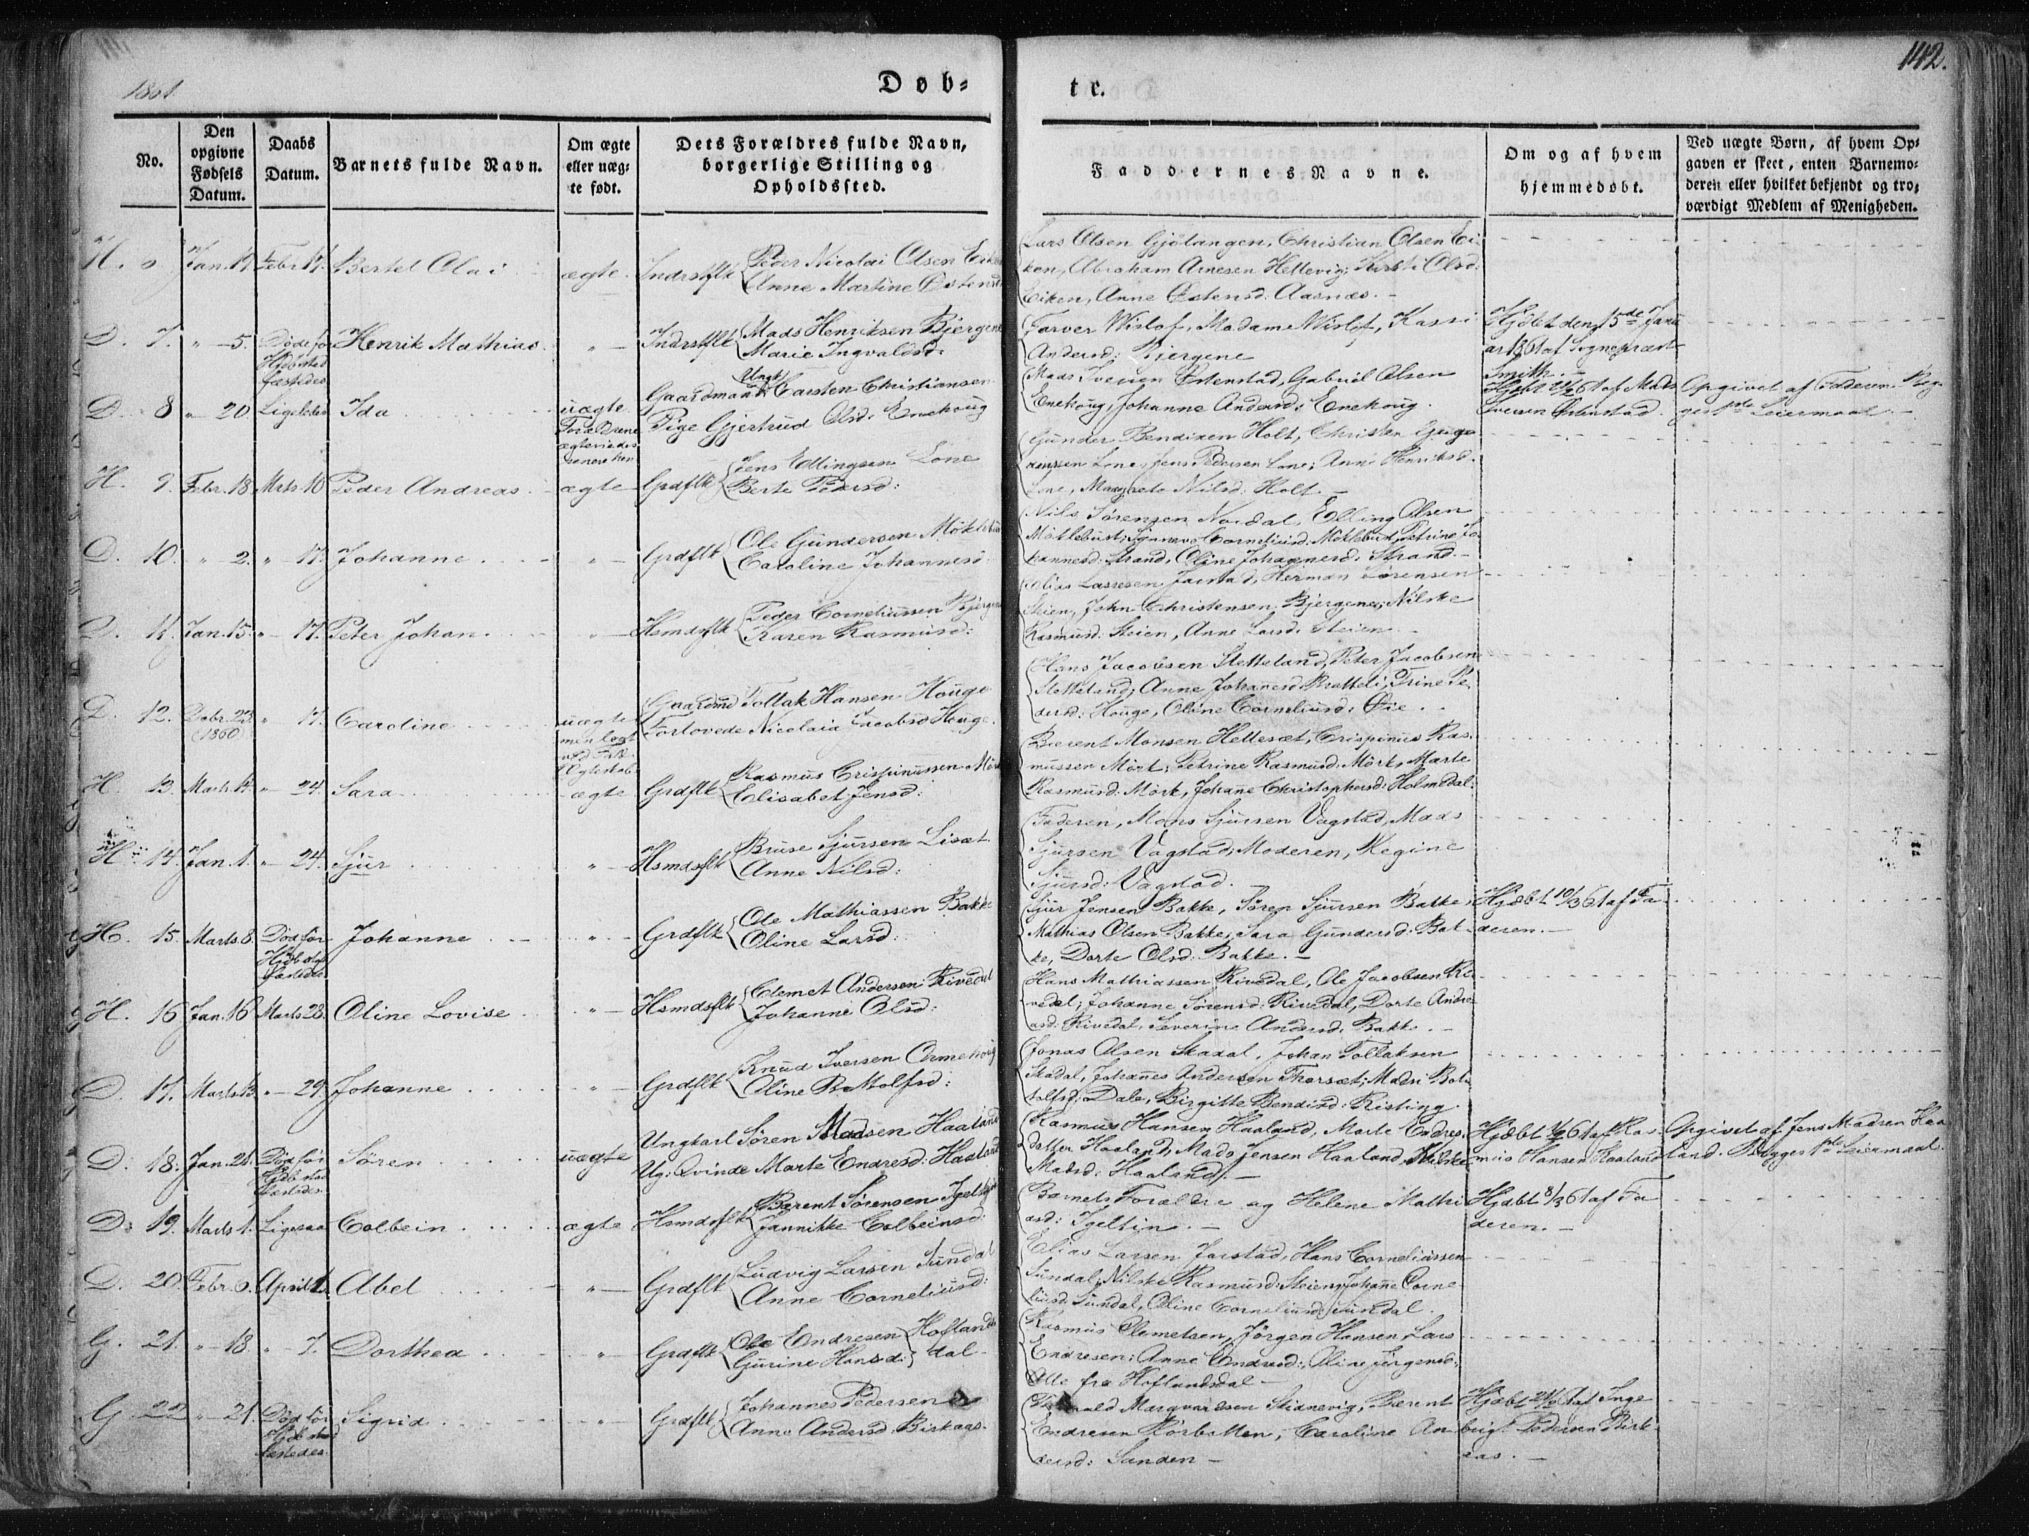 1861
Døb-
te.
142.
No.
Den opgivne Fødsels Datum.
Daabs Datum.
Barnets fulde Navn.
Om ægte eller uæg-te født.
Dets Forældres fulde Navn, borgerlige Stilling og Opholdssted.
Faddernes Navne.
Om og af hvem hjemmedøbt.
Ved uægte Børn, af hvem Op-gaven er skeet, enten Barnemo-deren eller hvilket bekjendt og tro-værdigt Medlem af Menigheden.
H. 6 Jan. 14 Febr. 17. Bertel Olai ægte Indrstflk Peder Nicolai Olsen Eiken
Anne Martine Østensd
Lars Olsen Gjølangen, Christian Olsen Ei-
ken, Abraham Arnesen Hellevig; Kirsti Olsd:
Eiken, Anne Østensd: Aasnæs. -
D. 7. " 5. Død før Hjdb stad fæstedes Henrik Mathias " Indrstflk Mads Henriksen Bjergene
Marie Ingvaldsd:
Farver Wisløf, Madame Wisløf, Kassi
Andersd: Bjergene
Hjdbt den 15de Janu
ar 1861 af Sognepræst
Smith. -
D. 8 " 20 Ligeledes Ida uægte Forældrene ægteviedes senere hen Gaardmand Ungk. Carsten Christiansen
Pige Gjertrud Olsd: Enekoug
Mads Iversen Østenstad, Gabriel Olsen
Enekoug, Johanne Andersd: Enekoug.
61 af Mads
Iversen Østenstad.
Opgivet af Faderen. Beg-
ges Leiermaal. -
H. 9. Febr. 18. Mrts 10 Peder Andreas ægte Grdflk Jens Ellingsen Lone
Berte Pedersd:
Gunder Bendixen Holt, Christen
Lone, Jens Pedersen Lone; Anne Henriksd.
Lone, Margrete Nilsd: Holt. -
D. 10. " 2. " 17. Johanne " Grdflk Ole Gundersen Møklebust
Caroline Johannesd:
Nils Sørensen Nordal, Elling Olsen
Møklebust; Synneve Corneliusd: Møklebust, Petrine Jo-
hannesd: Strand, Oline Johannesd: Strand. -
D. 11. Jan. 15. " 17. Peter Johan " Hsmdsflk Peder Corneliussen Bjergene
Karen Rasmusd:
Elias Larsen Jarstad, Herman Sørensen
Steien, John Christensen Bjergene; Nilske
Rasmusd: Steien, Anne Larsd: Steien. -
D. 12. Dcbr. 23. (1860) " 17. Caroline uægte men lagt ved Ægteskab Gaardmd Tollak Hansen Houge
Forlovede Nicolaia Jacobsd Houge
Hans Jacobsen Sletteland, Peter Jacobsen
Sletteland; Anne Johannesd: Bratteli, Trine Pe-
dersd: Houge, Oline Corneliusd: Øie.
H. 13. Marts 14. " 24. Sara ægte Grdflk Rasmus Crispinussen Mørk
Elisabet Jensd:
Berent Monsen Hellesæt, Crispinus Ras-
mussen Mørk; Petrine Rasmusd: Mørk, Marte
Rasmusd: Mørk, Johane Christophersd: Holmedal.
H. 14. Jan. 1. " 24. Sjur " Hsmdsflk Bruse Sjursen Lisæt
Anne Nilsd:
Faderen, Mons Sjursen Vagstad, Mads
Sjursen Vagstad; Moderen, Regine
Sjursd: Vagstad.
H. 15. Marts 8. Død før Hjdb stad fæstedes Johanne " Grdflk Ole Mathiassen Bakke
Oline Larsd:
Sjur Jensen Bakke, Søren Sjursen Bakke,
Mathias Olsen Bakke; Sara Gundersd: Bak-
ke, Dorte Olsd: Bakke. -
Hjdbt 10/3 61 af Fa
deren. -
H. 16 Jan. 16 Marts 28. Oline Lovise " Hsmdsflk Clemet Andersen Rivedal
Johanne Olsd:
Hans Mathiassen Rivedal, Ole Jacobsen Ri-
vedal; Johanne Sørensd: Rivedal, Dorte Andre-
asd: Rivedal, Severine Andersd: Bakke. -
D. 17. Marts 13. " 29. Johanne " Grdflk Knud Iversen Ormekoug
Oline Botolfsd:
Jonas Olsen Skadal, Johan Tollaksen
Skadal, Johannes Andersen Thorsæt; Madsi Bo-
tolfsd: Dale, Birgitte Bendixd: Risting.
D. 18. Jan. 21. Død før Hjdb stad fæstedes Søren uægte Ungkarl Søren Madsen Haaland
Ug: Qvinde Marte Endresd: Haaland
Rasmus Hansen Haaland, Marte Endres-
datter Haaland, Mads Jensen Haaland, Nilske
Madsd: Haaland. -
61 af Ras-
mus Hansen Haaland
Opgivet af Jens Madsen Haa
land. Begges Leiermaal.
D. 19. Marts 1. Ligesaa Colbein ægte Hsmdsflk Berent Sørensen Igeltjn
Jannikke Colbeinsd
Barnets Forældre og Helene Mathi
asd: Igeltin. -
Hjdbt 8/3 61 af Fa
deren. -
D. 20. Febr. 6. April 1. Abel " Grdflk Ludvig Larsen Sundal
Anne Corneliusd:
Elias Larsen Jarstad, Hans Corneliussen
Sundal; Nilske Rasmusd: Steien, Johanne Corne
liusd: Sundal, Oline Corneliusd: Sundal.
G. 21. " 18. " 7. Dorthea " Grdflk Ole Endresen Hoflands
Gurine Hansd: dal -
Rasmus Clemetsen, Jørgen Hansen, Lars
Endresen; Anne Endresd:, Oline Jørgensd:
Alle fra Hoflandsdal -
G. 22 " 21. Død før Hjdb stad fæstedes Sigrid " Grdflk Johannes Pedersen
Anne Andersd: Birkaas.
Marqvardsen Stidnevig, Berent
Endresen Korsbotten, Caroline An-
dersd: Sanden -
61 af Inge
brigt Pedersen Birk-
aas. -